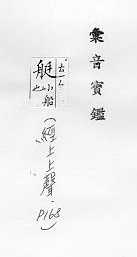 彙音寶鑑
艇小船也
(經上上聲 P168)